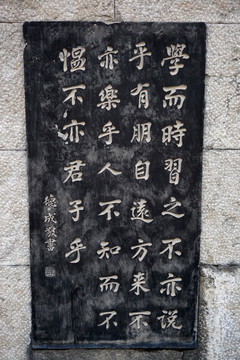 學而時習之不亦说
乎有朋自遠方来不
亦樂乎人不知而不
愠不亦君子乎
德成敬書